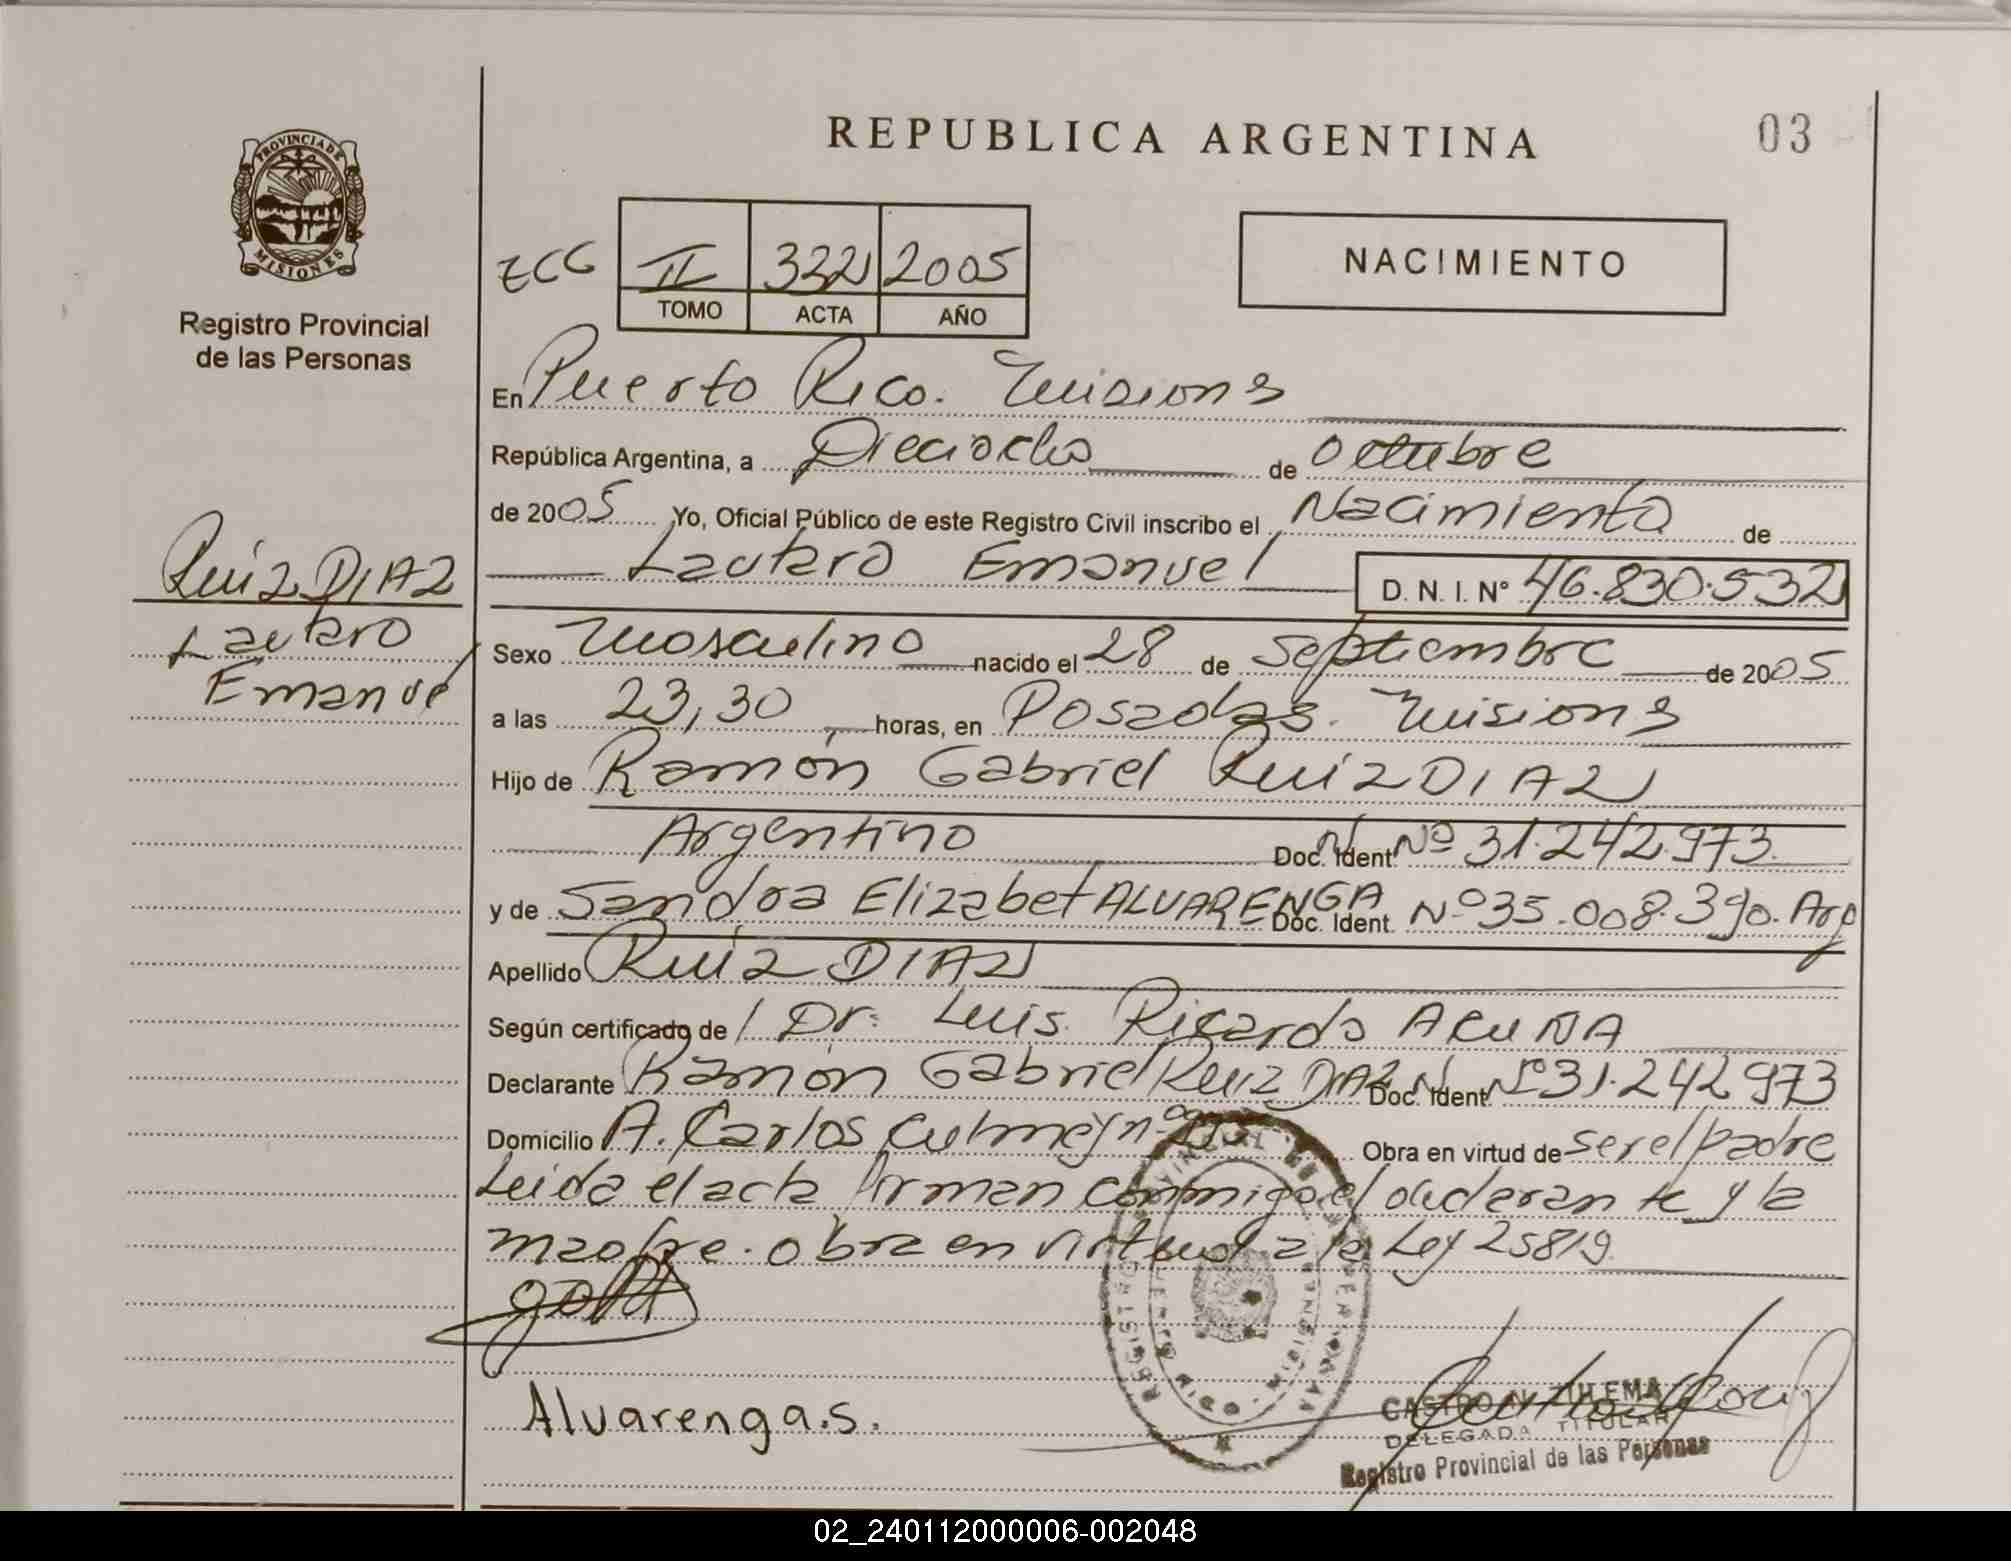 REPUBLICA ARGENTINA
03
PROVINCIA DE
MISIONES
Registro Provincial
de las Personas
II 332 2005
TOMO ACTA AÑO
NACIMIENTO
En Puerto Rico. Misiones
República Argentina, a Dieciocho de Octubre
de 2005 Yo, Oficial Público de este Registro Civil inscribo el Nacimiento de
Lautaro Emanuel D. N. I. Nº 46.830.532
Ruiz DIAZ
Lautaro
Emanuel
Sexo Masculino nacido el 28 de Septiembre de 2005
a las 23,30 horas, en Posadas. Misiones
Hijo de Ramón Gabriel Ruiz DIAZ
Argentino Doc. Ident. Nº 31.242.973.
y de Sandra Elizabet ALVARENGA Doc. Ident. Nº 35.008.390. Arg
Apellido Ruiz DIAZ
Según certificado de Dr. Luis Ricardo ACUÑA
Declarante Ramón Gabriel Ruiz DIAZ Doc. Ident. Nº 31.242973
Domicilio A. Carlos Culmey nº Obra en virtud de ser el padre
Leida el acta firman conmigo el declarante y la
madre. obra en virtud a la Ley 25819
Alvarenga.s.
DELEGADA TITULAR
Registro Provincial de las Personas
02_240112000006-002048